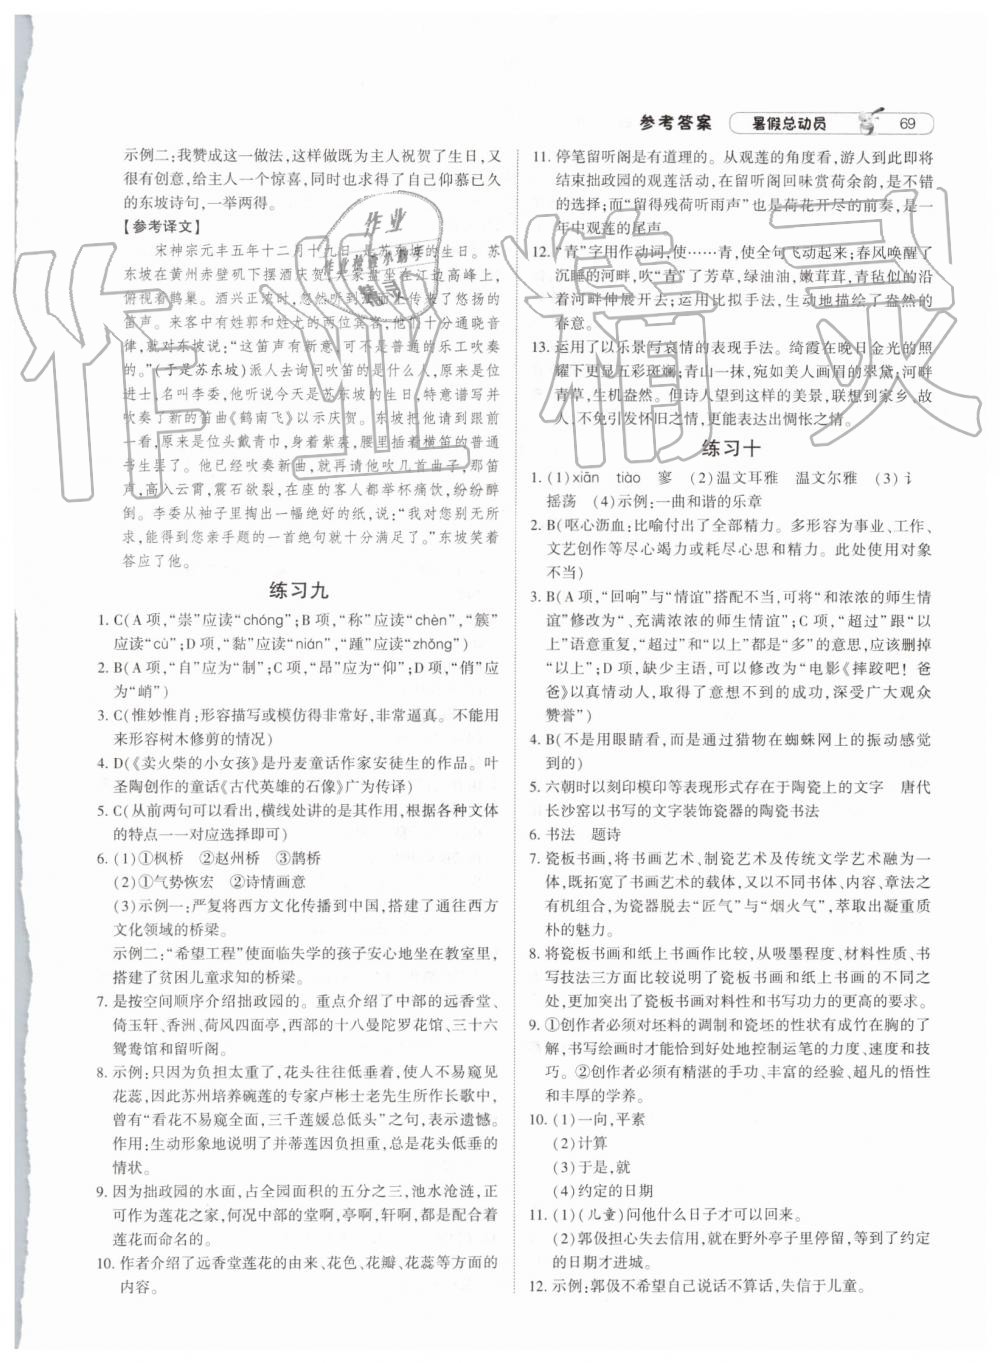 参考答案 暑假总动员 69
示例二:我赞成这一做法,这样做既为主人祝贺了生日,又
很有创意,给主人一个惊喜,同时也寻求了自己仰慕已久
的东坡诗句,一举两得。
【参考译文】
宋神宗元丰五年十二月十九日,是苏东坡的生日。苏
东坡在黄州赤壁矶下摆酒庆贺。大家盘坐在江边高峰上,
俯视着鹊巢。酒兴正浓时,忽然听到江面上传来了悠扬的
笛声。来客中有姓郭和姓尤的两位宾客,他们十分通晓音
律,就对东坡说:“这笛声有新意,可不是普通的乐工吹奏
的。”(于是苏东坡)派人去询问吹笛的是什么人,原来是位
进士,名叫李委,他听说今天是苏东坡的生日,特意谱写并
吹奏了新的笛曲《鹤南飞》以示庆贺。东坡把他请到跟前
一看,原来是位头戴青巾,身着紫裘,腰里插着横笛的普通
书生罢了。他已经吹奏新曲,就再请他吹几首曲子,那笛
声,高入云霄,震石欲裂,在座的客人都举杯痛饮,纷纷醉
倒。李委从袖子里掏出一幅绝好的纸,说:“我对您别无所
求,能得到您亲手题的一首绝句就十分满足了。”东坡笑着
答应了他。
练习九
1. C(A项,“崇”应读“chóng”;B项,“称”应读“chèn”,“簇”
应读“cù”;D项,“黏”应读“nián”,“踵”应读“zhǒng”)
2. B(A项,“自”应为“制”;C项,“昂”应为“仰”;D项,“俏”应
为“峭”)
3. C(惟妙惟肖:形容描写或模仿得非常好,非常逼真。不能用
来形容树木修剪的情况)
4. D(《卖火柴的小女孩》是丹麦童话作家安徒生的作品。叶
圣陶创作的童话《古代英雄的石像》广为传译)
5. C(从前两句可以看出,横线处讲的是其作用,根据各种文体
的特点一一对应选择即可)
6. (1)①枫桥 ②赵州桥 ③鹊桥
(2)①气势恢宏 ②诗情画意
(3)示例一:严复将西方文化传播到中国,搭建了通往西方
文化领域的桥梁。
示例二:“希望工程”使面临失学的孩子安心地坐在教室里,
搭建了贫困儿童求知的桥梁。
7. 是按空间顺序介绍拙政园的。重点介绍了中部的远香堂、
倚玉轩、香洲、荷风四面亭,西部的十八曼陀罗花馆、三十六
鸳鸯馆和留听阁。
8. 示例:只因为负担太重了,花头往往低垂着,使人不易窥见
花蕊,因此苏州培养碗莲的专家卢彬士老先生所作长歌中,
曾有“看花不易窥全面,三千莲媛总低头”之句,表示遗憾。
作用:生动形象地说明了并蒂莲因负担重,总是花头低垂的
情状。
9. 因为拙政园的水面,占全园面积的五分之三,池水沧涟,正
可作为莲花之家,何况中部的堂啊,亭啊,轩啊,都是配合着
莲花而命名的。
10. 作者介绍了远香堂莲花的由来、花色、花瓣、花蕊等方面的
内容。
11. 停笔留听阁是有道理的。从观莲的角度看,游人到此即将
结束拙政园的观莲活动,在留听阁回味赏荷余韵,是不错
的选择;而“留得残荷听雨声”也是荷花开尽的前奏,是一
年中观莲的尾声。
12. “青”字用作动词,使……青,使全句飞动起来;春风唤醒了
沉睡的河畔,吹“青”了芳草,绿油油,嫩茸茸,青毡似的沿
着河畔伸展开去;运用比拟手法,生动地描绘了盎然的
春意。
13. 运用了以乐景写哀情的表现手法。绮霞在晚日金光的照
耀下更显五彩斑斓;青山一抹,宛如美人画眉的翠黛;河畔
青草,生机盎然。但诗人望到这样的美景,联想到家乡、故
人,不免引发怀旧之情,更能表达出惆怅之情。
练习十
1. (1)xiān tiào 寥 (2)温文耳雅 温文尔雅 (3)讠
摇荡 (4)示例:一曲和谐的乐章
2. B(呕心沥血:比喻付出了全部精力。多形容为事业、工作、
文艺创作等尽心竭力或耗尽心思和精力。此处使用对象
不当)
3. B(A项,“回响”与“情谊”搭配不当,可将“和浓浓的师生情
谊”修改为“、充满浓浓的师生情谊”;C项,“超过”跟“以
上”语意重复,“超过”和“以上”都是“多”的意思,应该删掉
“以上”;D项,缺少主语,可以修改为“电影《摔跤吧!爸
爸》以真情动人,取得了意想不到的成功,深受广大观众
赞誉”)
4. B(不是用眼睛看,而是通过猎物在蜘蛛网上的振动感觉
到的)
5. 六朝时以刻印模印等表现形式存在于陶瓷上的文字 唐代
长沙窑以书写的文字装饰瓷器的陶瓷书法
6. 书法 题诗
7. 瓷板书画,将书画艺术、制瓷艺术及传统文学艺术融为一
体,既拓宽了书画艺术的载体,又以其文体、内容、章法之
有机组合,为瓷器脱去“匠气”与“烟火气”,萃取出凝重质
朴的魅力。
8. 将瓷板书画和纸上书画作比较,从吸墨程度、材料性质、书
写技法三方面比较说明了瓷板书画和纸上书画的不同之
处,更加突出了瓷板书画对料性和书写功力的更高的要求。
9. ①创作者必须对坯料的调制和瓷坯的性状有成竹在胸的了
解,书写绘画时才能恰到好处地控制运笔的力度、速度和技
巧。②创作者必须有精湛的手功、丰富的经验、超凡的悟性
和丰厚的学养。
10. (1)一向,平素
(2)计算
(3)于是,就
(4)约定的日期
11. (1)(儿童)问他什么日子才可以回来。
(2)郭伋担心失去信用,就在野外亭子里停宿,等到了约定
的日期才进城。
12. 示例:郭伋不希望自己说话不算话,失信于儿童。
作业精灵
作业
作业检查小帮手
精灵